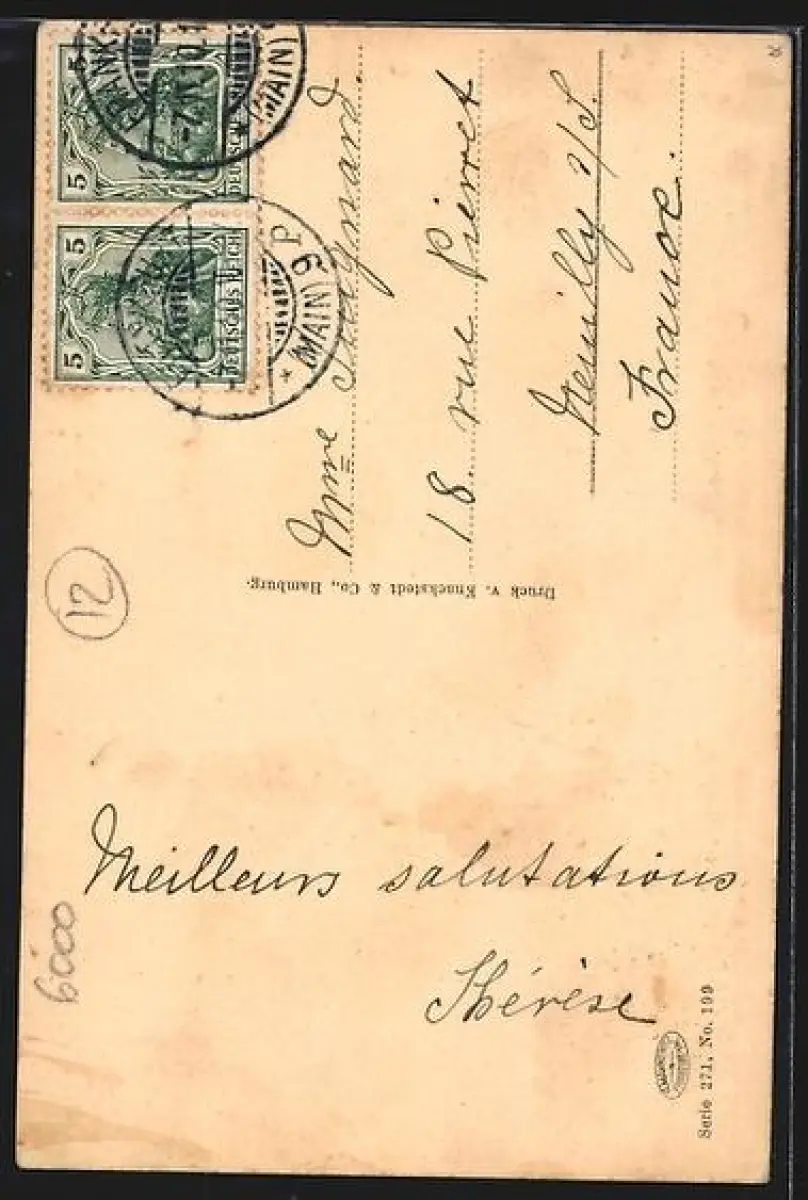 5 5
DEUTSCHES REICH
5 5
DEUTSCHES REICH
(MAIN)
P 6
* (MAIN)
Mme
18 rue Pierret
Neuilly s/S.
France.
Druck v. Knackstedt & Co., Hamburg.
12
Meilleurs salutations
Thérèse
6000
Serie 271, No. 199